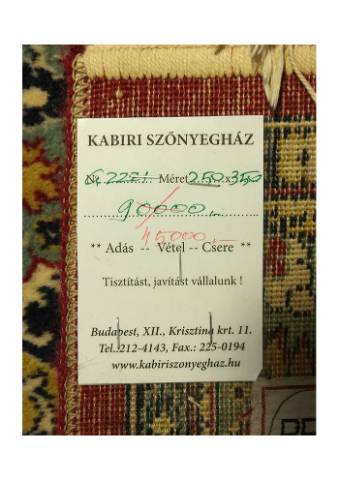 KABIRI SZŐNYEGHÁZ
Nr. 2271. Méret 250x350
90000.-
45000.-
** Adás -- Vétel -- Csere **
Tisztítást, javítást vállalunk !
Budapest, XII., Krisztina krt. 11.
Tel.:212-4143, Fax.: 225-0194
www.kabiriszonyeghaz.hu